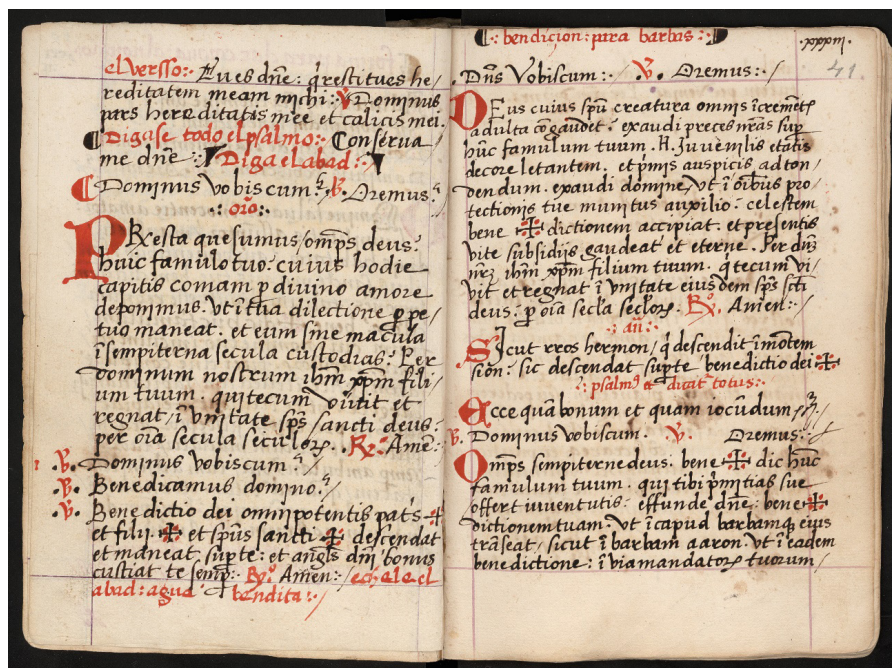 el versso:· Tu es dñe: q̃ restitues he/
reditatem meam michi: ꝟ Dominus
pars hereditatis mee et calicis mei.
Digase todo el psalmo:· Conserua
me dñe:· Diga el abad:·
Dominus vobiscum. ꝟ. Oremus:
·:oro:·
PResta quesumus/omp̃s deus:
huic famulo tuo: cuius hodie
capitis comam p diuino amore
deponimus. vt ĩ tua dilectione ꝑpe/
tuo maneat. et eum sine macula
ĩ sempiterna secula custodias: Per
dominum nostrum ihm̃ xp̃m fili/
um tuum. qui tecum viuit et
regnat/ĩ vnitate sp̃s/sancti deus:
per oĩa secula seculoꝝ. ℟.º Amẽ:
ꝟ. Dominus vobiscum.
ꝟ. Benedicamus domino.
ꝟ. Benedictio dei omnipotentis pat̃s ✠
et filij. ✠ et sp̃us santti ✠ descendat
et maneat. sup̃ te: et angl̃s dñi bonus
custiat te semp̃:· ℟.º Amen:·/ echele el
abad: agua bendita:·/
bendiçion: para barbas:·
.lxxxiiij.
41
.Dñs Vobiscum:·/ ꝟ. Oremus:·/
DEus cuius sp̃u creatura omnis ĩcremẽtꝭ
adulta cõgaudet. exaudi preces nr̃as sup̃
hũc famulum tuum .H. Juuenilis etatis
decore letantem. et p̃mis auspicis adton/
dendum. exaudi domine/ vt ĩ oĩbus pro/
tectionis tue munitus auxilio. celestem
bene ✠ dictionem accipiat. et presentis
vite subsidijs gaudeat et eterne. Per dñz
nr̃z ihm̃ xp̃m filium tuum. q̃ tecum vi/
vit et regnat ĩ vnitate eiusdem sp̃s sc̃ti
deus: ꝑ oĩa secl̃a secl̃oꝝ. ℟.º Amen:·/
·:añ:·
SIcut rros hermon/ q̃ descendit ĩ mõtem
sion: sic descendat sup̃ te benedictio dei ✠
:psalmꝰ dicat totus:·
Ecce quã bonum et quam iocũdum/
ꝟ. Dominus vobiscum. ꝟ. Oremus:·
Omp̃s sempiterne deus. bene ✠ dic hũc
famulum tuum. qui tibi p̃mitias sue
offert iuuentutis: effunde dñe: bene ✠
dictionem tuam. Vt ĩ capud barbamqꝫ eius
trãseat/ sicut ĩ barbam aaron. vt ĩ eadem
benedictione: ĩ via mandatoꝝ tuorum/